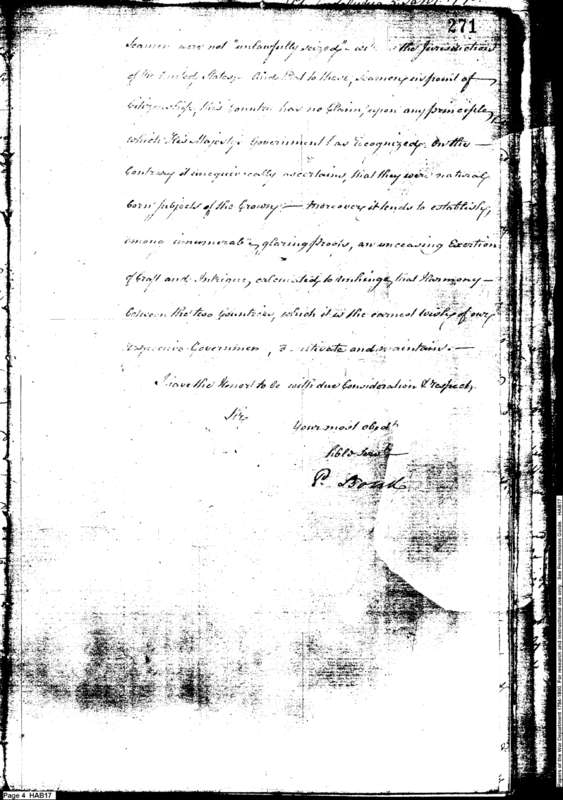 271
Seamen were not "unlawfully seized" - the Jurisdiction
of the United States. And to these, Seamen, in point of
Citizenship, this Country has no Claim, upon any principle,
which His Majesty's Government has recognized. On the -
Contrary it unequivocally ascertains, that they were natural
born subjects of the Crown; - moreover, it tends to establish,
among innumerable glaring proofs, an unceasing Exertion
of Craft and Intrigue, calculated to unhinge, that Harmony -
between the two Countries, which it is the earnest wish, of our
respective Government, to cultivate and maintain. -
I have the Honor to be with due Consideration & respect,
Sir,
Your most obedt
hble Servt
P. Bond
Page 4 HAB17